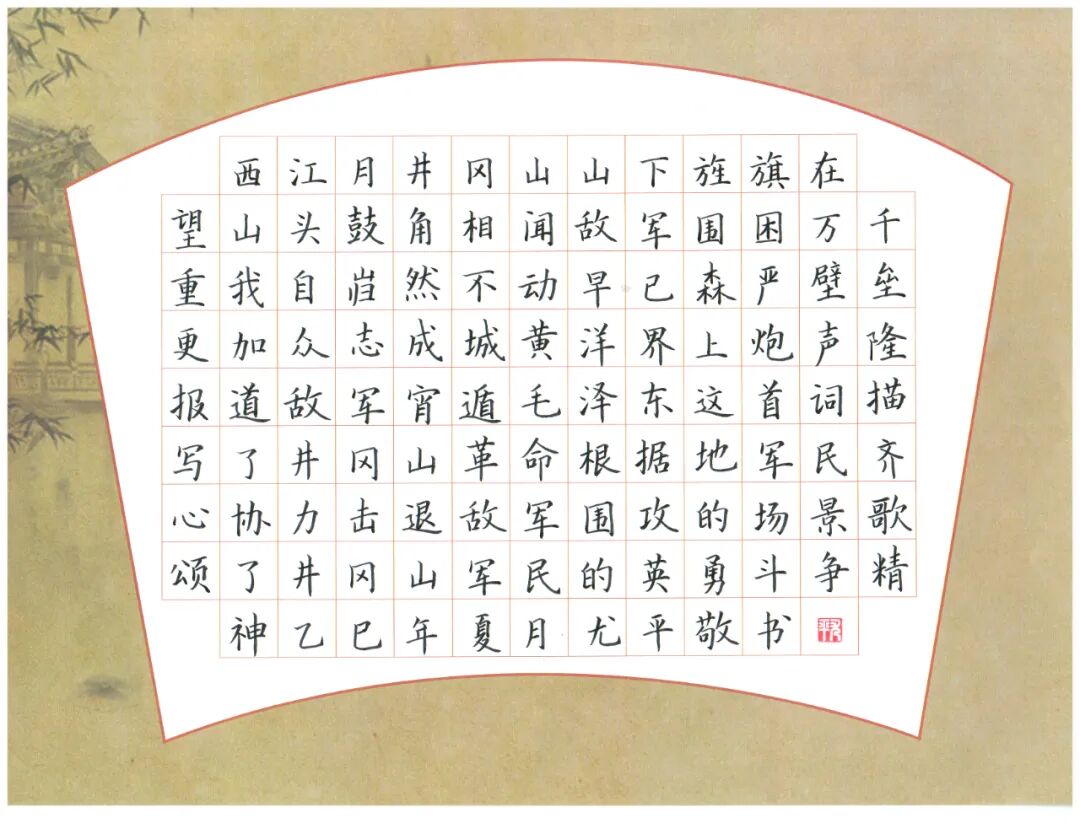 西江月井冈山山下旌旗在
望山头鼓角相闻敌军围困万千
重我自岿然不动早已森严壁垒
更加众志成城黄洋界上炮声隆
报道敌军宵遁毛泽东这首词描
写了井冈山革命根据地军民齐
心协力击退敌军围攻的场景歌
颂了井冈山军民的英勇斗争精
神乙巳年夏月尤平敬书